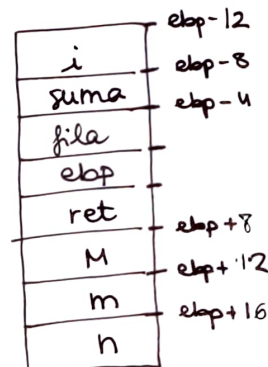 ebp-12
i
ebp-8
suma
ebp-4
fila
ebp
ret
ebp+8
M
ebp+12
m
ebp+16
n